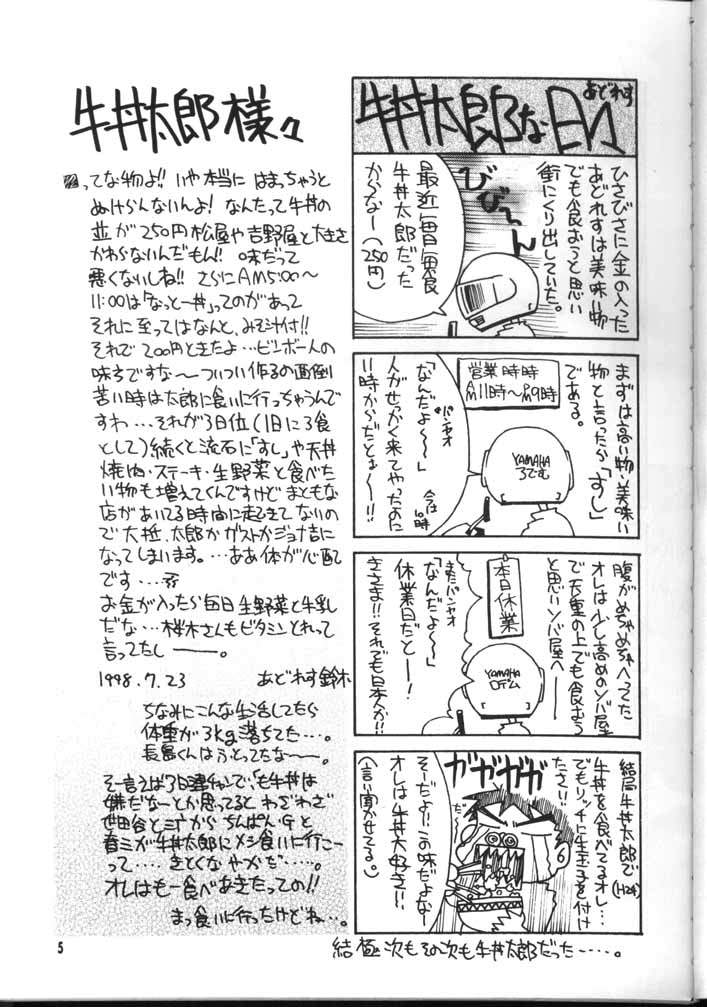 牛丼太郎な日々
あどれす
ひさびさに金の入った
あどれすは美味い物
でも食おうと思い
街にくり出していた。
びびーーん
最近毎日毎食
牛丼太郎だった
からなー(250円)
まずは高い物・美味い
物と言ったら「すし」
である。
営業時時
AM11時〜PM9時
YAMAHA
ろでむ
「なんだよ〜〜」
人がせっかく来てやったのに
11時からだとぉ〜!!
今は10時
腹がめちゃめちゃへってた
オレは少し高めのソバ屋
で天重の上でも食おう
と思いソバ屋へ―
本日休業
YAMAHA
ロデム
「なんだよ〜〜」
休業日だと―!
きさま!!それでも日本人か!!
結局牛丼太郎で
牛丼を食べてるオレ…
(H24)
でもリッチに生玉子を付け
たさ!!
ガガガガ
そーだよ!!この味だよな―
オレは牛丼大好き!!
(言い聞かせてる。)
結極次もその次も牛丼太郎だった……。
牛丼太郎様々
ってな物よ!! いや本当に はまっちゃうと
ぬけらんないんよ! なんたって牛丼の
並が250円松屋や吉野屋と大きさ
かわらないんだもん!! 味だって
悪くないしね!! さらにAM5:00〜
11:00は「なっとー丼」ってのがあって
それに至ってはなんと、みそ汁付!!
それで200円ときたよ…ビンボー人の
味方ですな〜 ついつい作るの面倒
苦い時は太郎に食いに行っちゃうんで
すわ…それが3日位(1日に3食
として)続くと流石に「すし」や天丼
焼肉・ステーキ・生野菜と食べた
い物も増えてくんですけどまともな
店があいてる時間に起きてないの
で大抵、太郎かガストかジョナ吉に
なってしまいます。…ああ体が心配
です…
お金が入ったら毎日生野菜と牛乳
だな…桜木さんもビタミンとれって
言ってたし――。
1998.7.23 あどれす鈴木
ちなみにこんな生活してたら
体重が3kg落ちてた…。
長島くんはふとってたな〜〜。
そー言うば3日連チャンで、も牛丼は
嫌だなーとか思ってると わざわざ
世田谷と三丁から ちんぱん・Gと
春ミが牛丼太郎にメシ食いに行こー
って…… きとくなやかだ……。
オレはもー食べあきたっての!!
まっ食いに行ったけどね…。
5